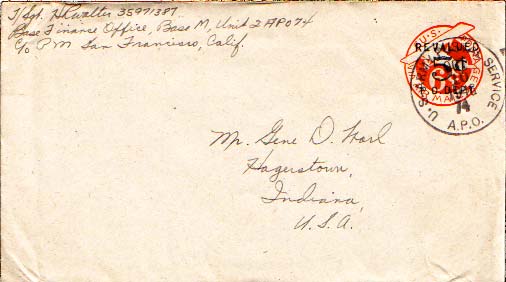 T/Sgt. H Kwalter 35971387
Base Finance Office, Base M, Unit 2 APO 74
C/o PM San Francisco, Calif.
U.S. POSTAGE
REVALUED
5¢
P.O. DEPT.
AIR MAIL
U.S. ARMY SERVICE
A.P.O.
74
Mr. Gene D. Warl
Hagerstown,
Indiana,
U.S.A.